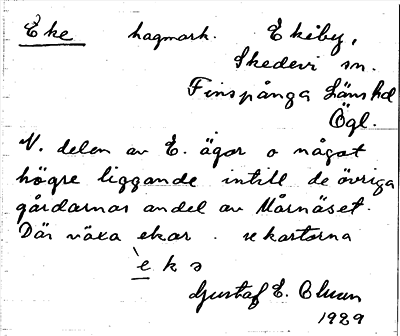 Eke hagmark. Ekeby,
Skedevi sn.
Finspånga Läns hd
Ögl.
N. delen av E. ägor o något
högre liggande intill de övriga
gårdarnas andel av Mårnäset.
Där växa ekar. se kartorna
èks
Gustaf E.
1929